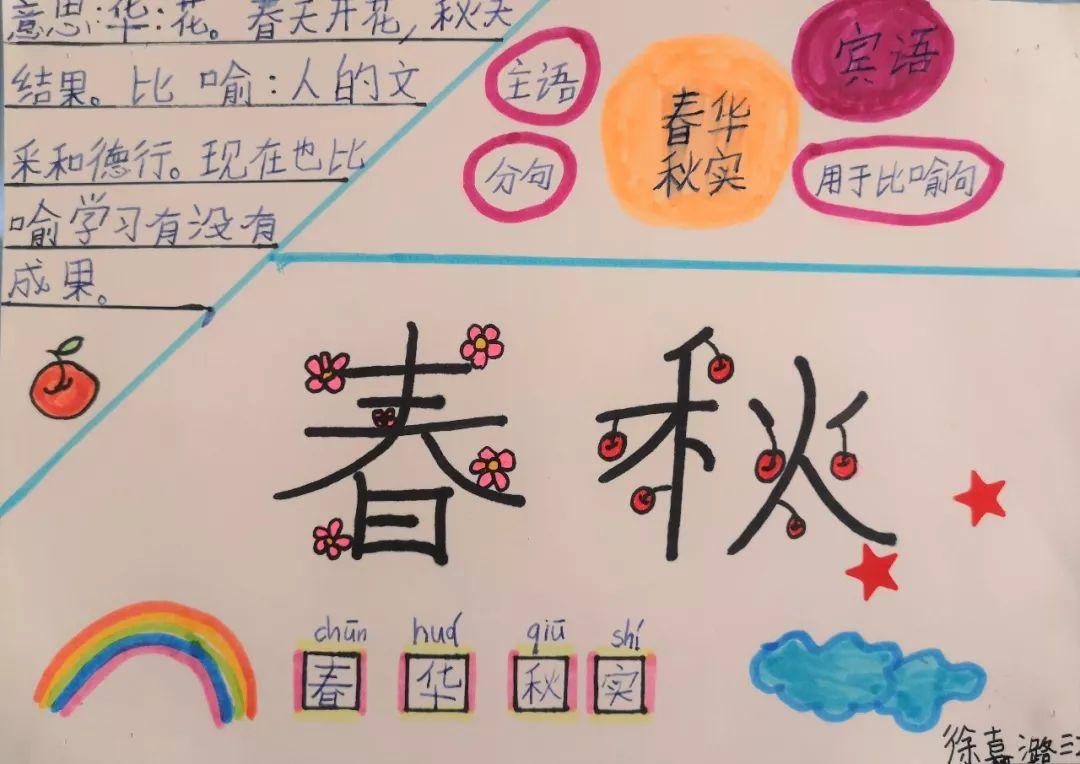 意思:华:花。春天开花,秋天
结果。比喻:人的文
采和德行。现在也比
喻学习有没有
成果。
主语
分句
春华
秋实
宾语
用于比喻句
春秋
chūn huá qiū shí
春华秋实
徐嘉潞